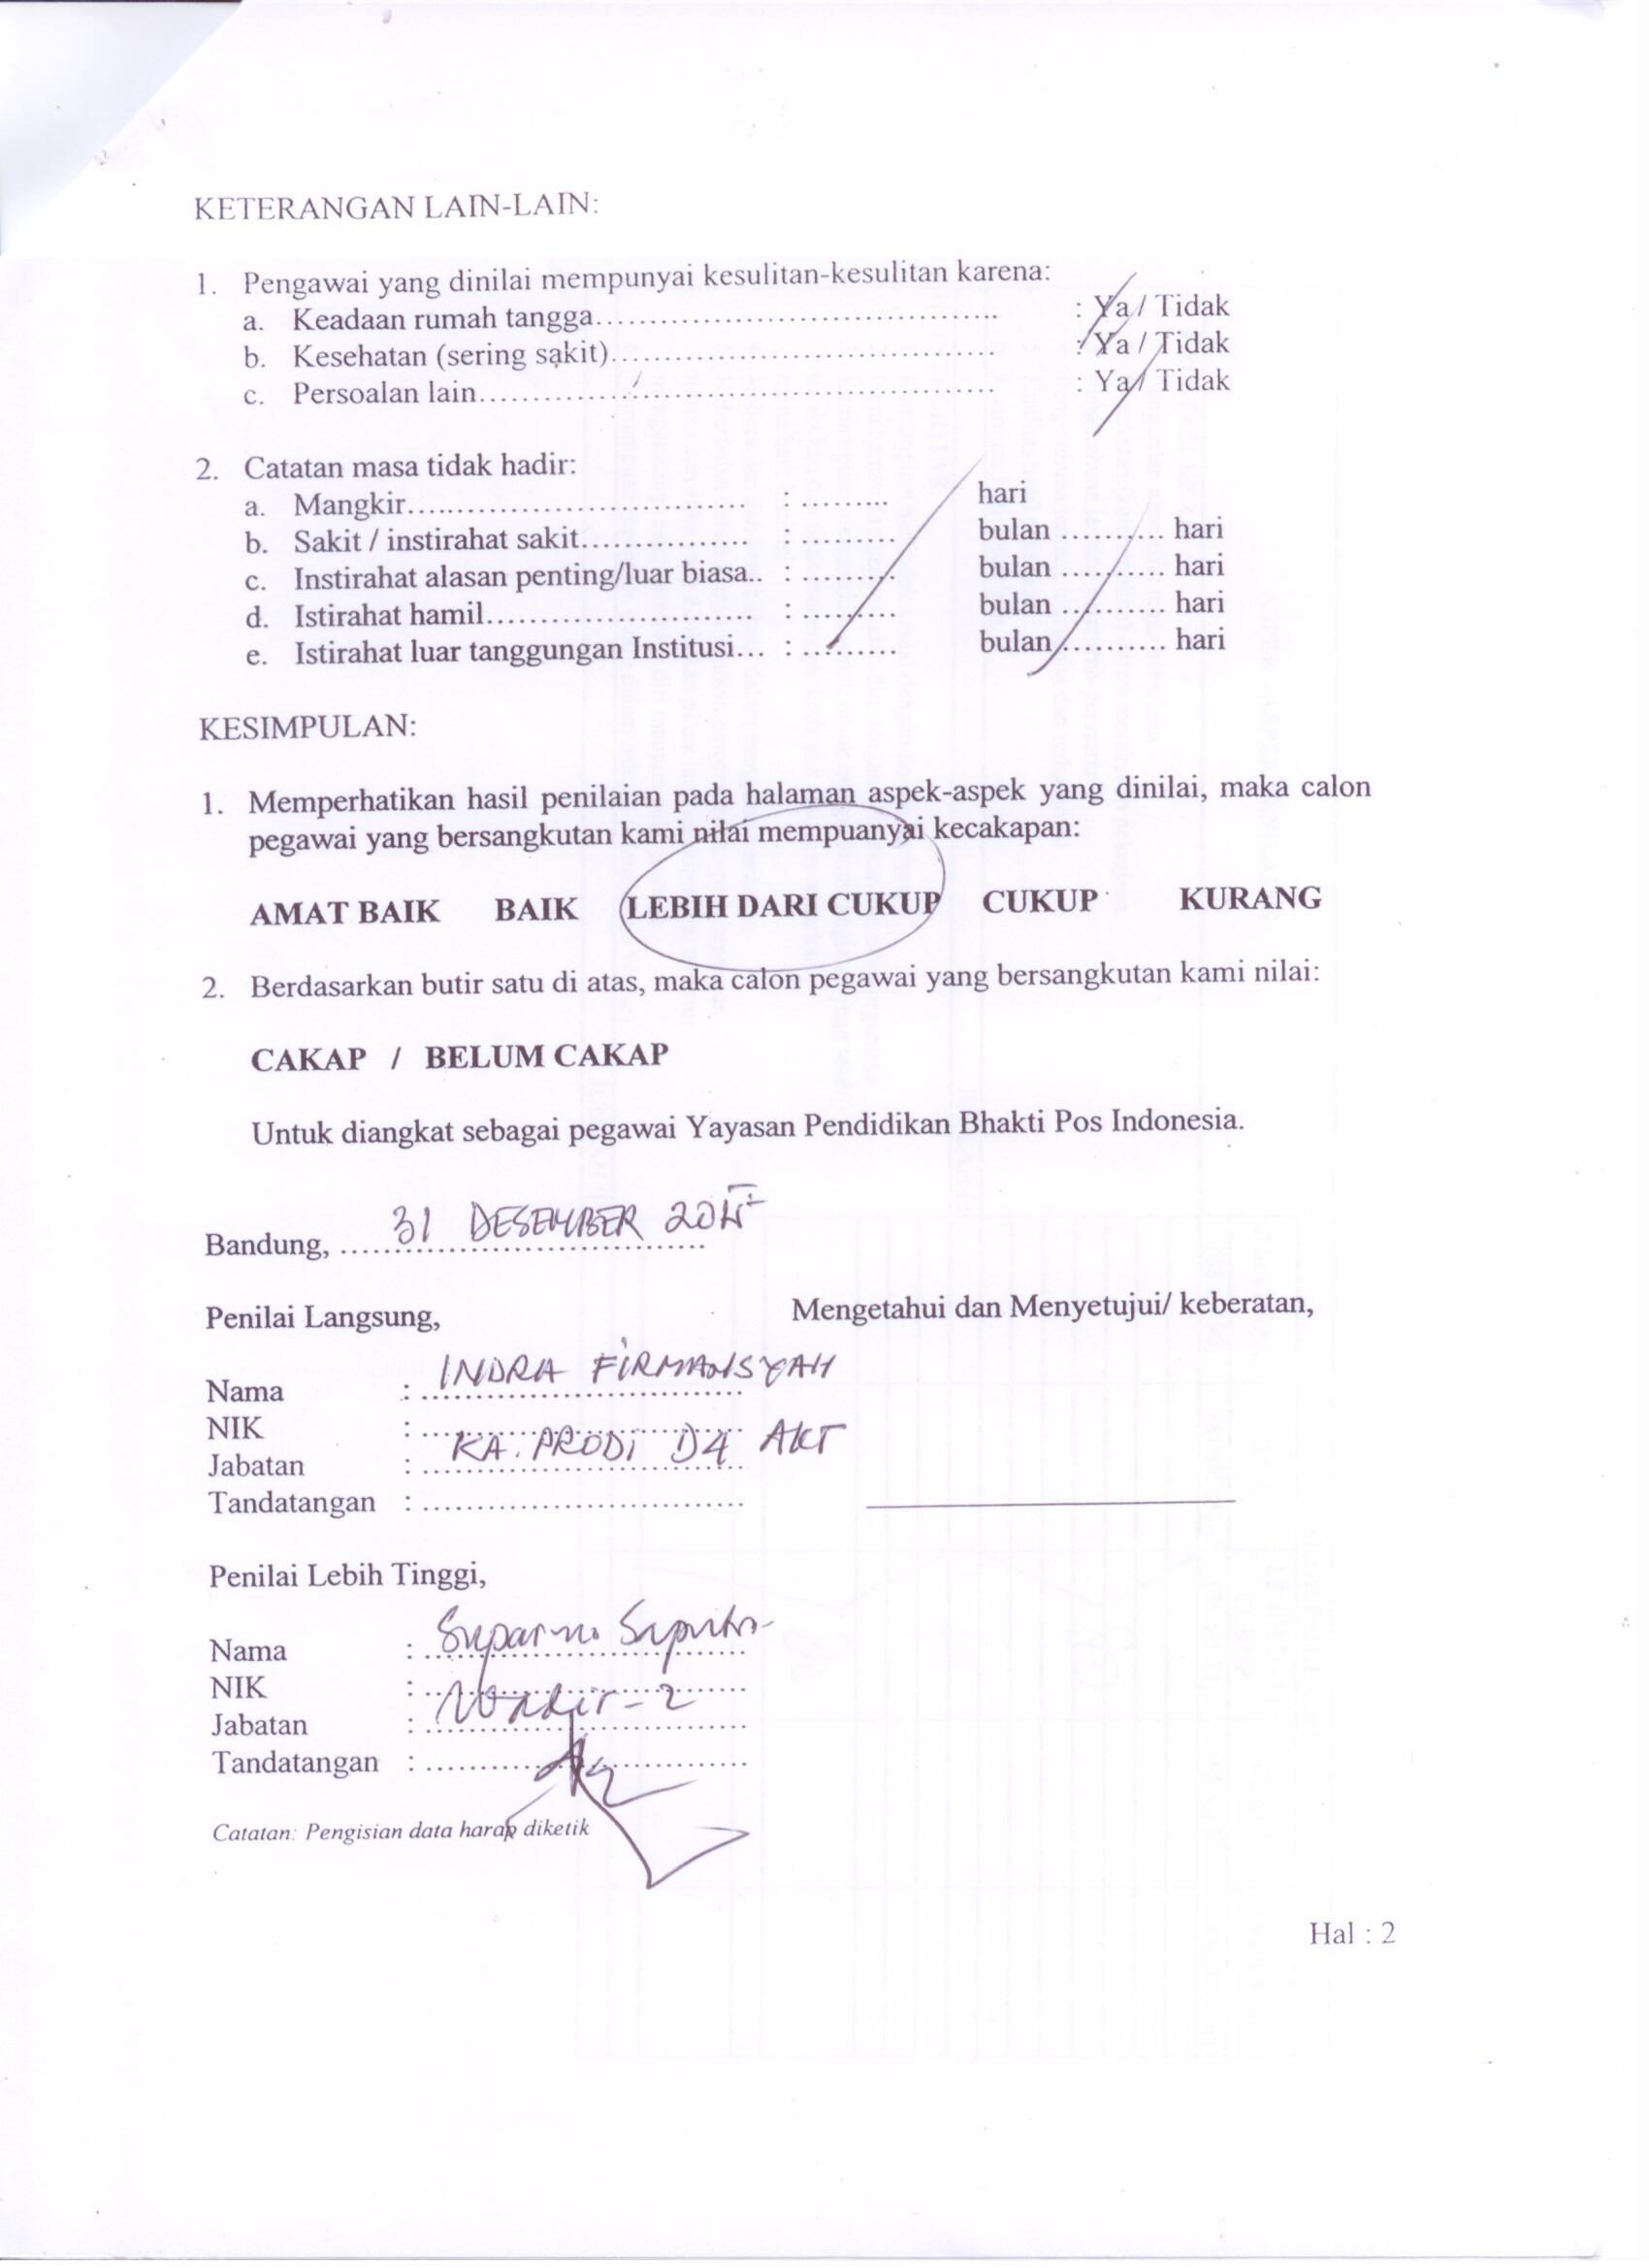 KETERANGAN LAIN-LAIN:
1. Pengawai yang dinilai mempunyai kesulitan-kesulitan karena:
a. Keadaan rumah tangga.................................... : Ya / Tidak
b. Kesehatan (sering sakit).................................. : Ya / Tidak
c. Persoalan lain.............................................. : Ya / Tidak
2. Catatan masa tidak hadir:
a. Mangkir............................... : ......... hari
b. Sakit / instirahat sakit................ : ......... bulan .......... hari
c. Instirahat alasan penting/luar biasa.. : ......... bulan .......... hari
d. Istirahat hamil........................ : ......... bulan .......... hari
e. Istirahat luar tanggungan Institusi... : ......... bulan .......... hari
KESIMPULAN:
1. Memperhatikan hasil penilaian pada halaman aspek-aspek yang dinilai, maka calon
pegawai yang bersangkutan kami nilai mempuanyai kecakapan:
AMAT BAIK BAIK LEBIH DARI CUKUP CUKUP KURANG
2. Berdasarkan butir satu di atas, maka calon pegawai yang bersangkutan kami nilai:
CAKAP / BELUM CAKAP
Untuk diangkat sebagai pegawai Yayasan Pendidikan Bhakti Pos Indonesia.
Bandung, 31 DESEMBER
Penilai Langsung, Mengetahui dan Menyetujui/ keberatan,
Nama : INDRA FIRMANSYAH
NIK : ..............................
Jabatan : KA. PRODI D4 AKT
Tandatangan : ..............................
Penilai Lebih Tinggi,
Nama : Suparno Saputra
NIK : ..............................
Jabatan : Wadir-2
Tandatangan : ..............................
Catatan: Pengisian data harap diketik
Hal : 2